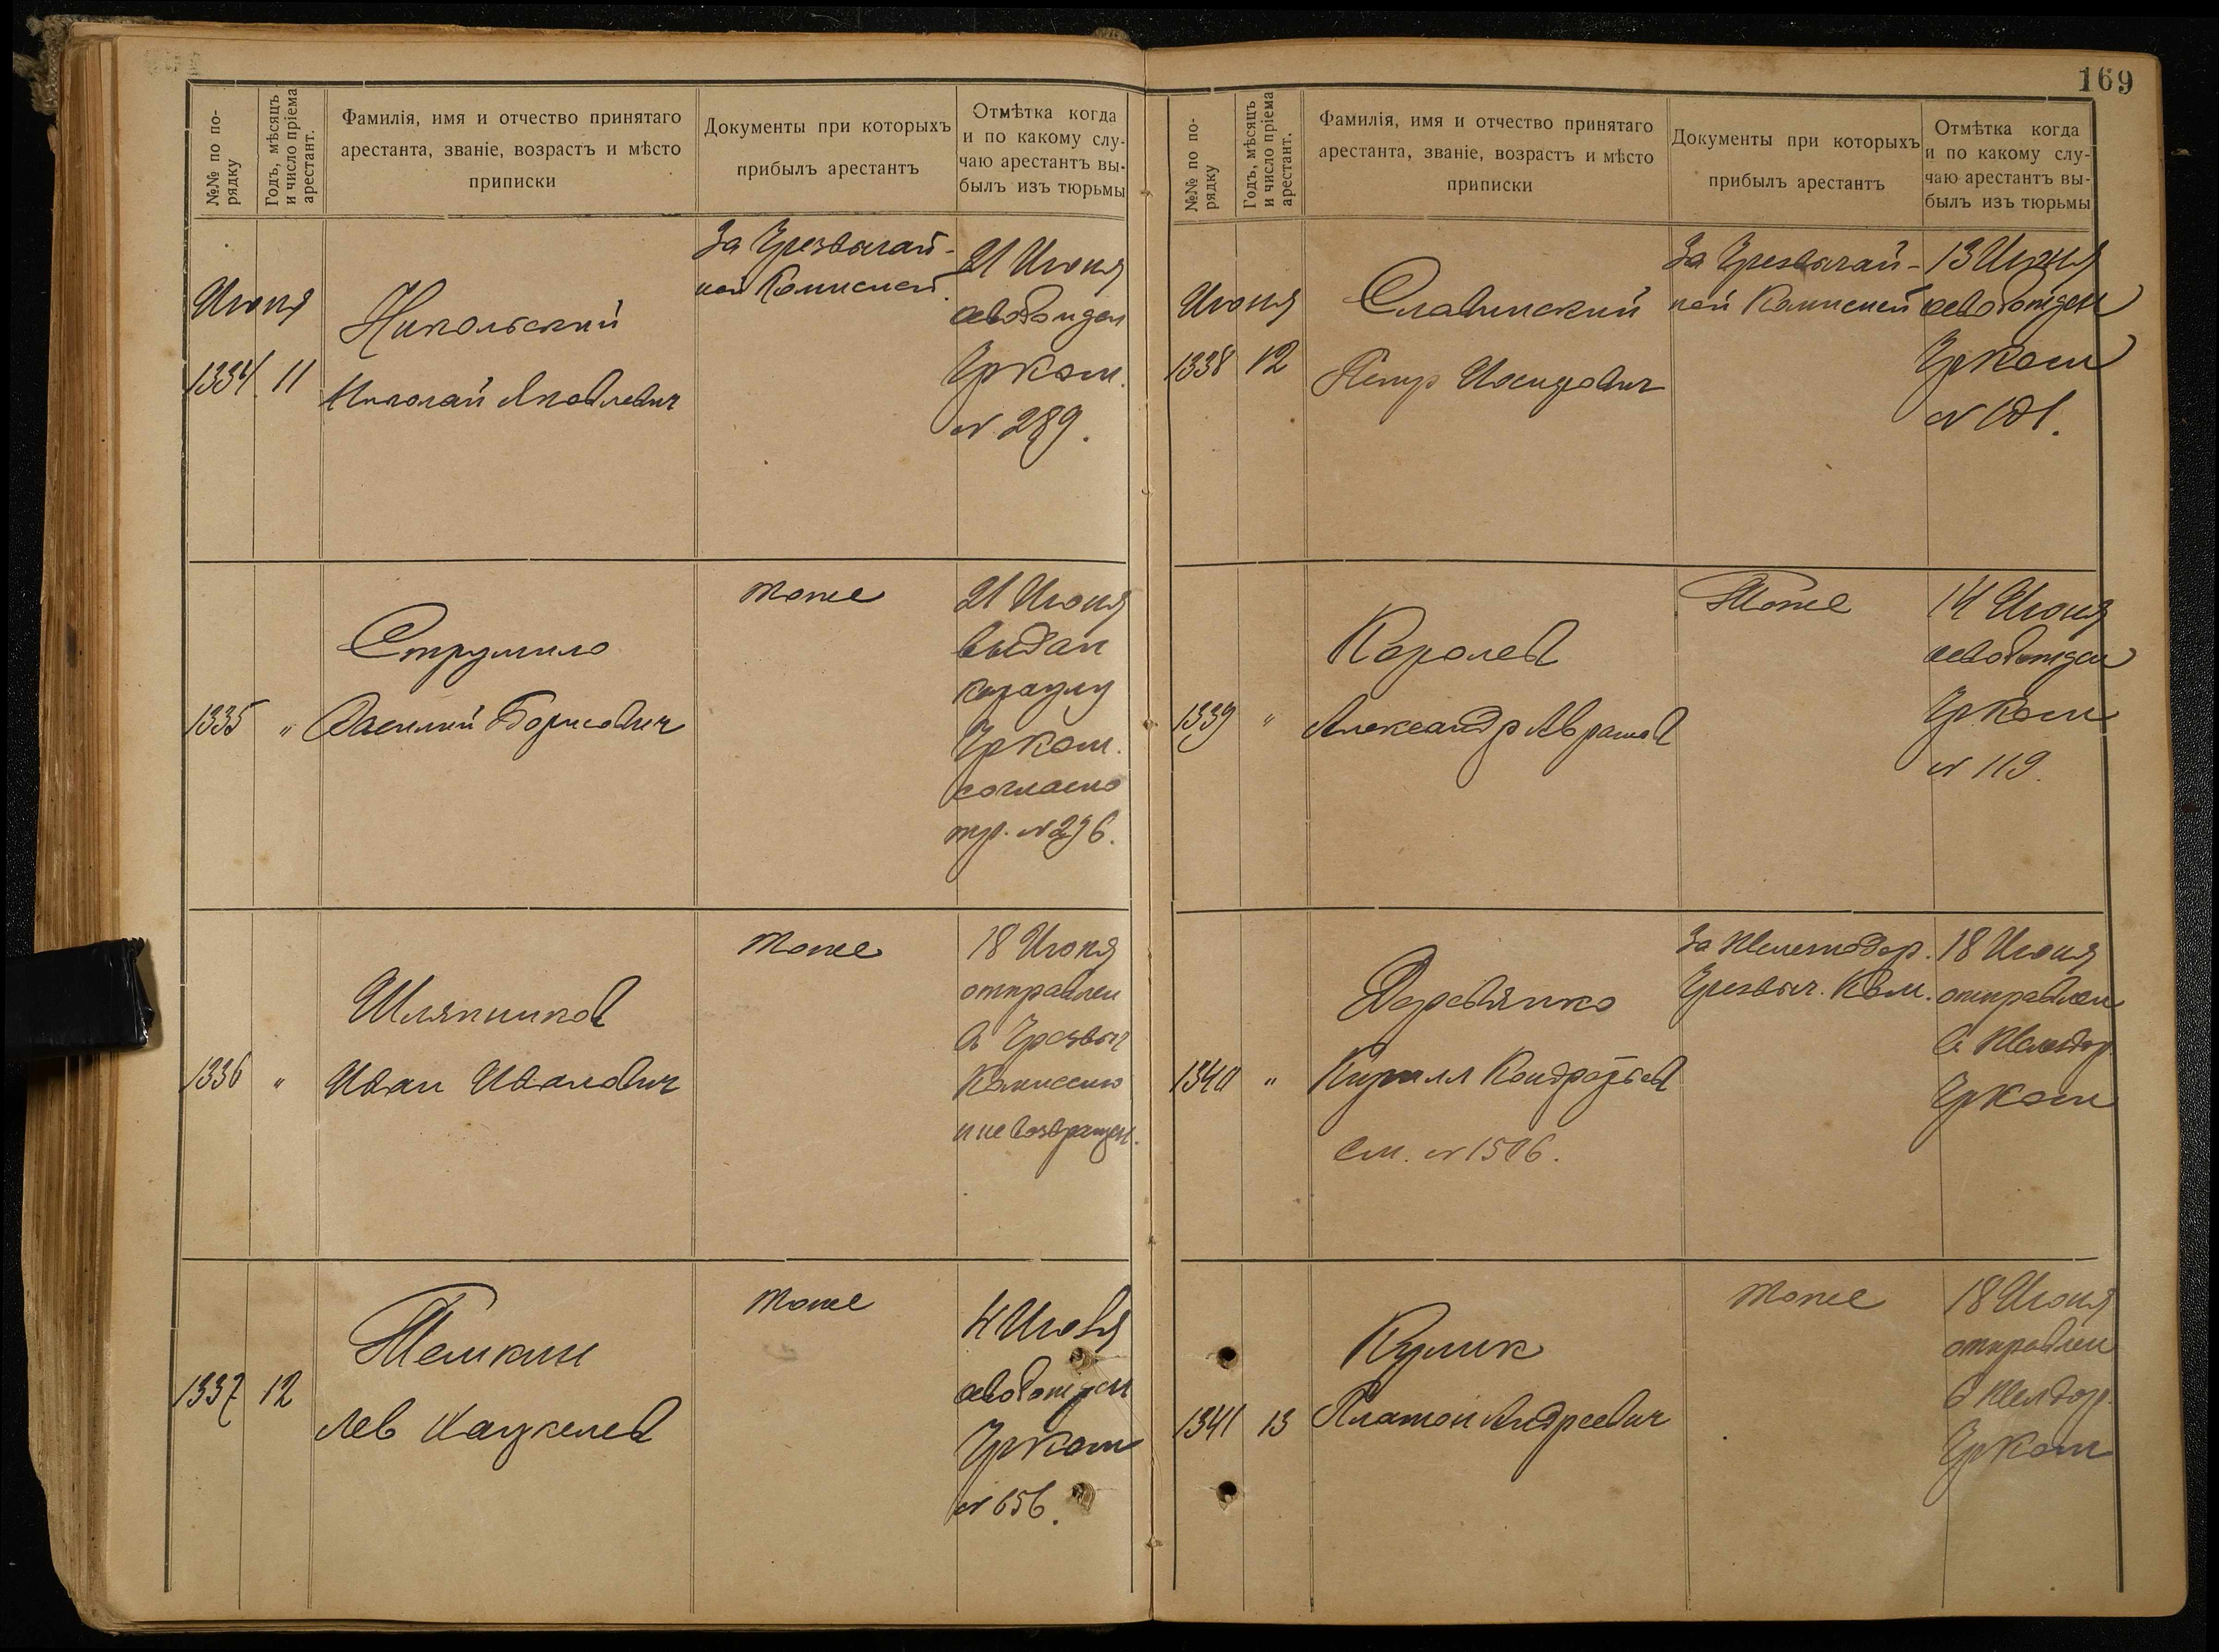 №№ по по-
рядку
Годъ, мѣсяцъ
и число пріема
арестант.
Фамилія, имя и отчество принятаго
арестанта, званіе, возрастъ и мѣсто
приписки
Документы при которыхъ
прибылъ арестантъ
Отмѣтка когда
и по какому слу-
чаю арестантъ вы-
былъ изъ тюрьмы
Июня
1334 11
Никольский
Николай Яковлевич
За Чрезвычай-
ной Комисией
21 Июня
освобожден
ЧрКом.
№ 289.
1335 "
Струмило
Василий Борисович
тоже
21 Июня
выдан
караулу
ЧрКом.
согласно
тр. № 296.
1336 "
Шляпников
Иван Иванович
тоже
18 Июня
отправлен
в Чрезвыч
Комиссию
и не возвращен.
1337 12
Темкин
Лев Хацкелев
тоже
4 Июля
освобожден
ЧрКом
№ 656.
169
№№ по по-
рядку
Годъ, мѣсяцъ
и число пріема
арестант.
Фамилія, имя и отчество принятаго
арестанта, званіе, возрастъ и мѣсто
приписки
Документы при которыхъ
прибылъ арестантъ
Отмѣтка когда
и по какому слу-
чаю арестантъ вы-
былъ изъ тюрьмы
Июня
1338 12
Славинский
Петр Иосифович
За Чрезвычай-
ной Комисией
13 Июня
освобожден
ЧрКом
№ 101.
1339 "
Королев
Александр Абрамов
Тоже
14 Июня
освобожден
ЧрКом
№ 119.
1340 "
Деревянко
Кирилл Кондратьев
См. № 1506.
За Железнодор.
Чрезвыч. Ком.
18 Июня
отправлен
в Желездор
ЧрКом
1341 13
Кулик
Платон Андреевич
тоже
18 Июня
отправлен
в Желдор.
ЧрКом